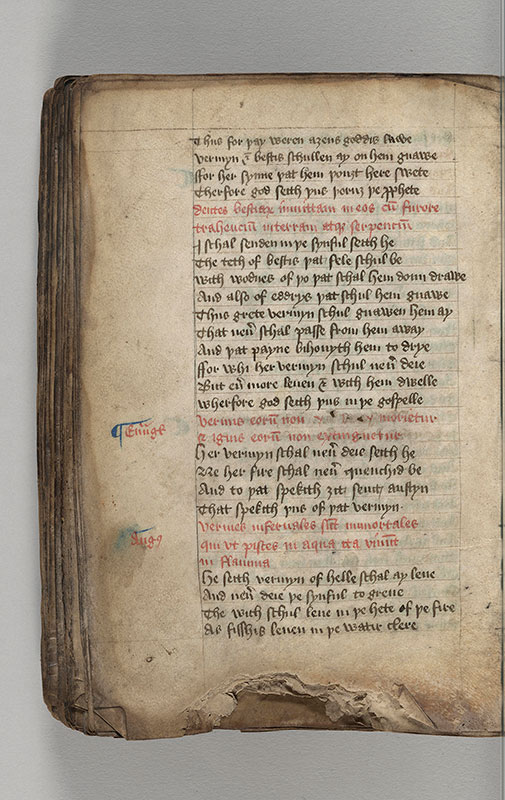 Thus for þay weren aȝens goddis lawe
vermyn & bestis schullen ay on hem gnawe
ffor her synne þat hem þouȝt here swete
Therfore god seith þus þoruȝ þe prophete
dentes bestiarum inmittam in eos cū furore
trahenciū in terram atque serpenciū
I schal senden in þe synful seith he
The teth of bestis þat fele schul be
with wodnes of þo þat schal hem doun drawe
And also of eddrys þat schul hem gnawe
Thus grete vermyn schul gnawen hem ay
That neū schal passe from hem away
And þat payne bihouyth hem to drye
ffor whi her vermyn schul neū deie
But eū more leuen & with hem dwelle
wherfore god seith þus in þe gospelle
Euūgl
vermis eorū non morietur
& ignis eorū non extinguetur
Her vermyn schal neū deie seith he
Ne her fire schal neū quenchid be
And to þat spekith ȝit seint austyn
That spekith þus of þat vermyn
Augꝰ
vermes infernales sūt inmortales
qui vt pisces in aqua ita viuūt
in flamma
He seith vermyn of helle schal ay leue
And neū deie þe synful to greue
The wich schul leue in þe hete of þe fire
As fisshis leuen in þe watir clere